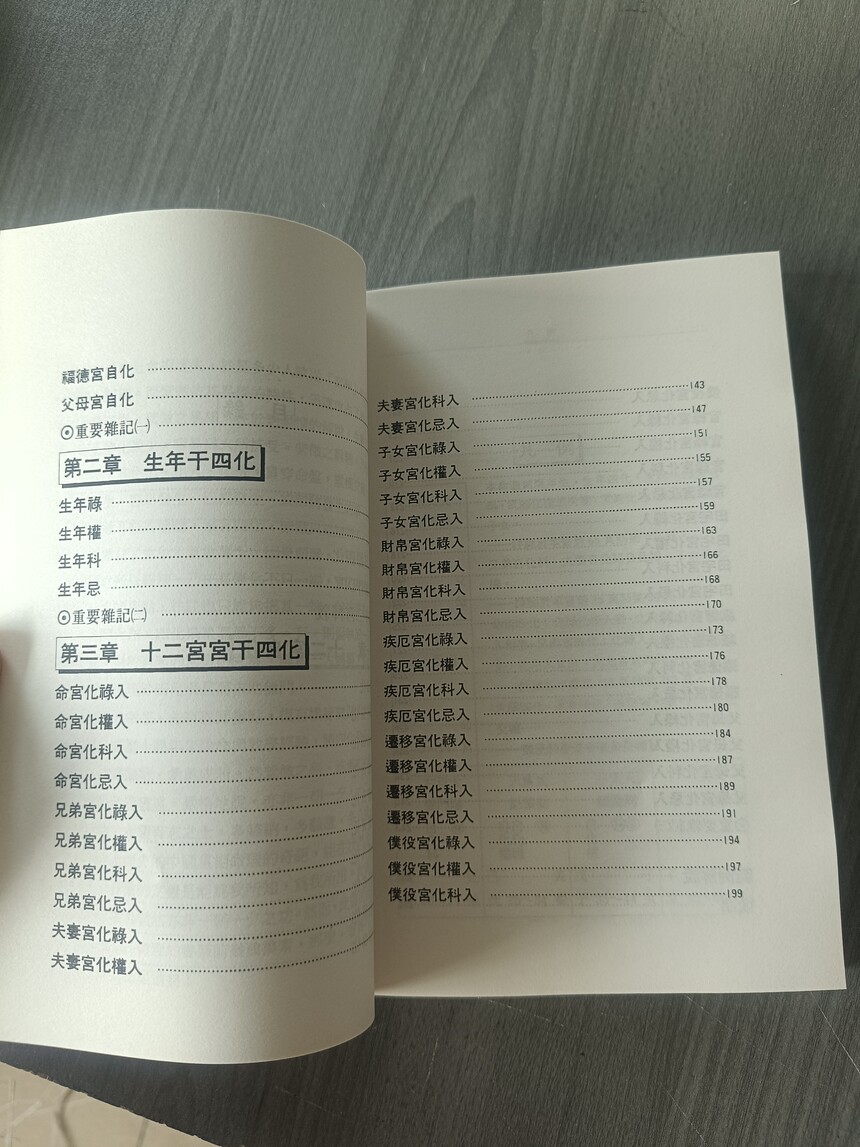 福德宮自化
父母宮自化
⊙重要雜記㈠
第二章 生年干四化
生年祿
生年權
生年科
生年忌
⊙重要雜記㈡
第三章 十二宮宮干四化
命宮化祿入
命宮化權入
命宮化科入
命宮化忌入
兄弟宮化祿入
兄弟宮化權入
兄弟宮化科入
兄弟宮化忌入
夫妻宮化祿入
夫妻宮化權入
夫妻宮化科入 143
夫妻宮化忌入 147
子女宮化祿入 151
子女宮化權入 155
子女宮化科入 157
子女宮化忌入 159
財帛宮化祿入 163
財帛宮化權入 166
財帛宮化科入 168
財帛宮化忌入 170
疾厄宮化祿入 173
疾厄宮化權入 176
疾厄宮化科入 178
疾厄宮化忌入 180
遷移宮化祿入 184
遷移宮化權入 187
遷移宮化科入 189
遷移宮化忌入 191
僕役宮化祿入 194
僕役宮化權入 197
僕役宮化科入 199